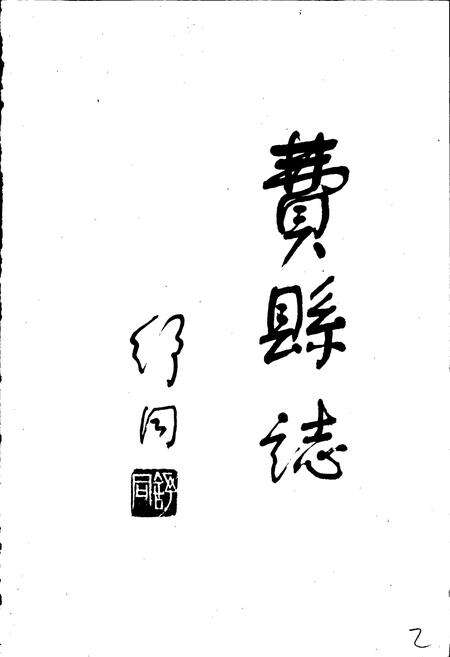 費縣誌
舒同
舒同
2